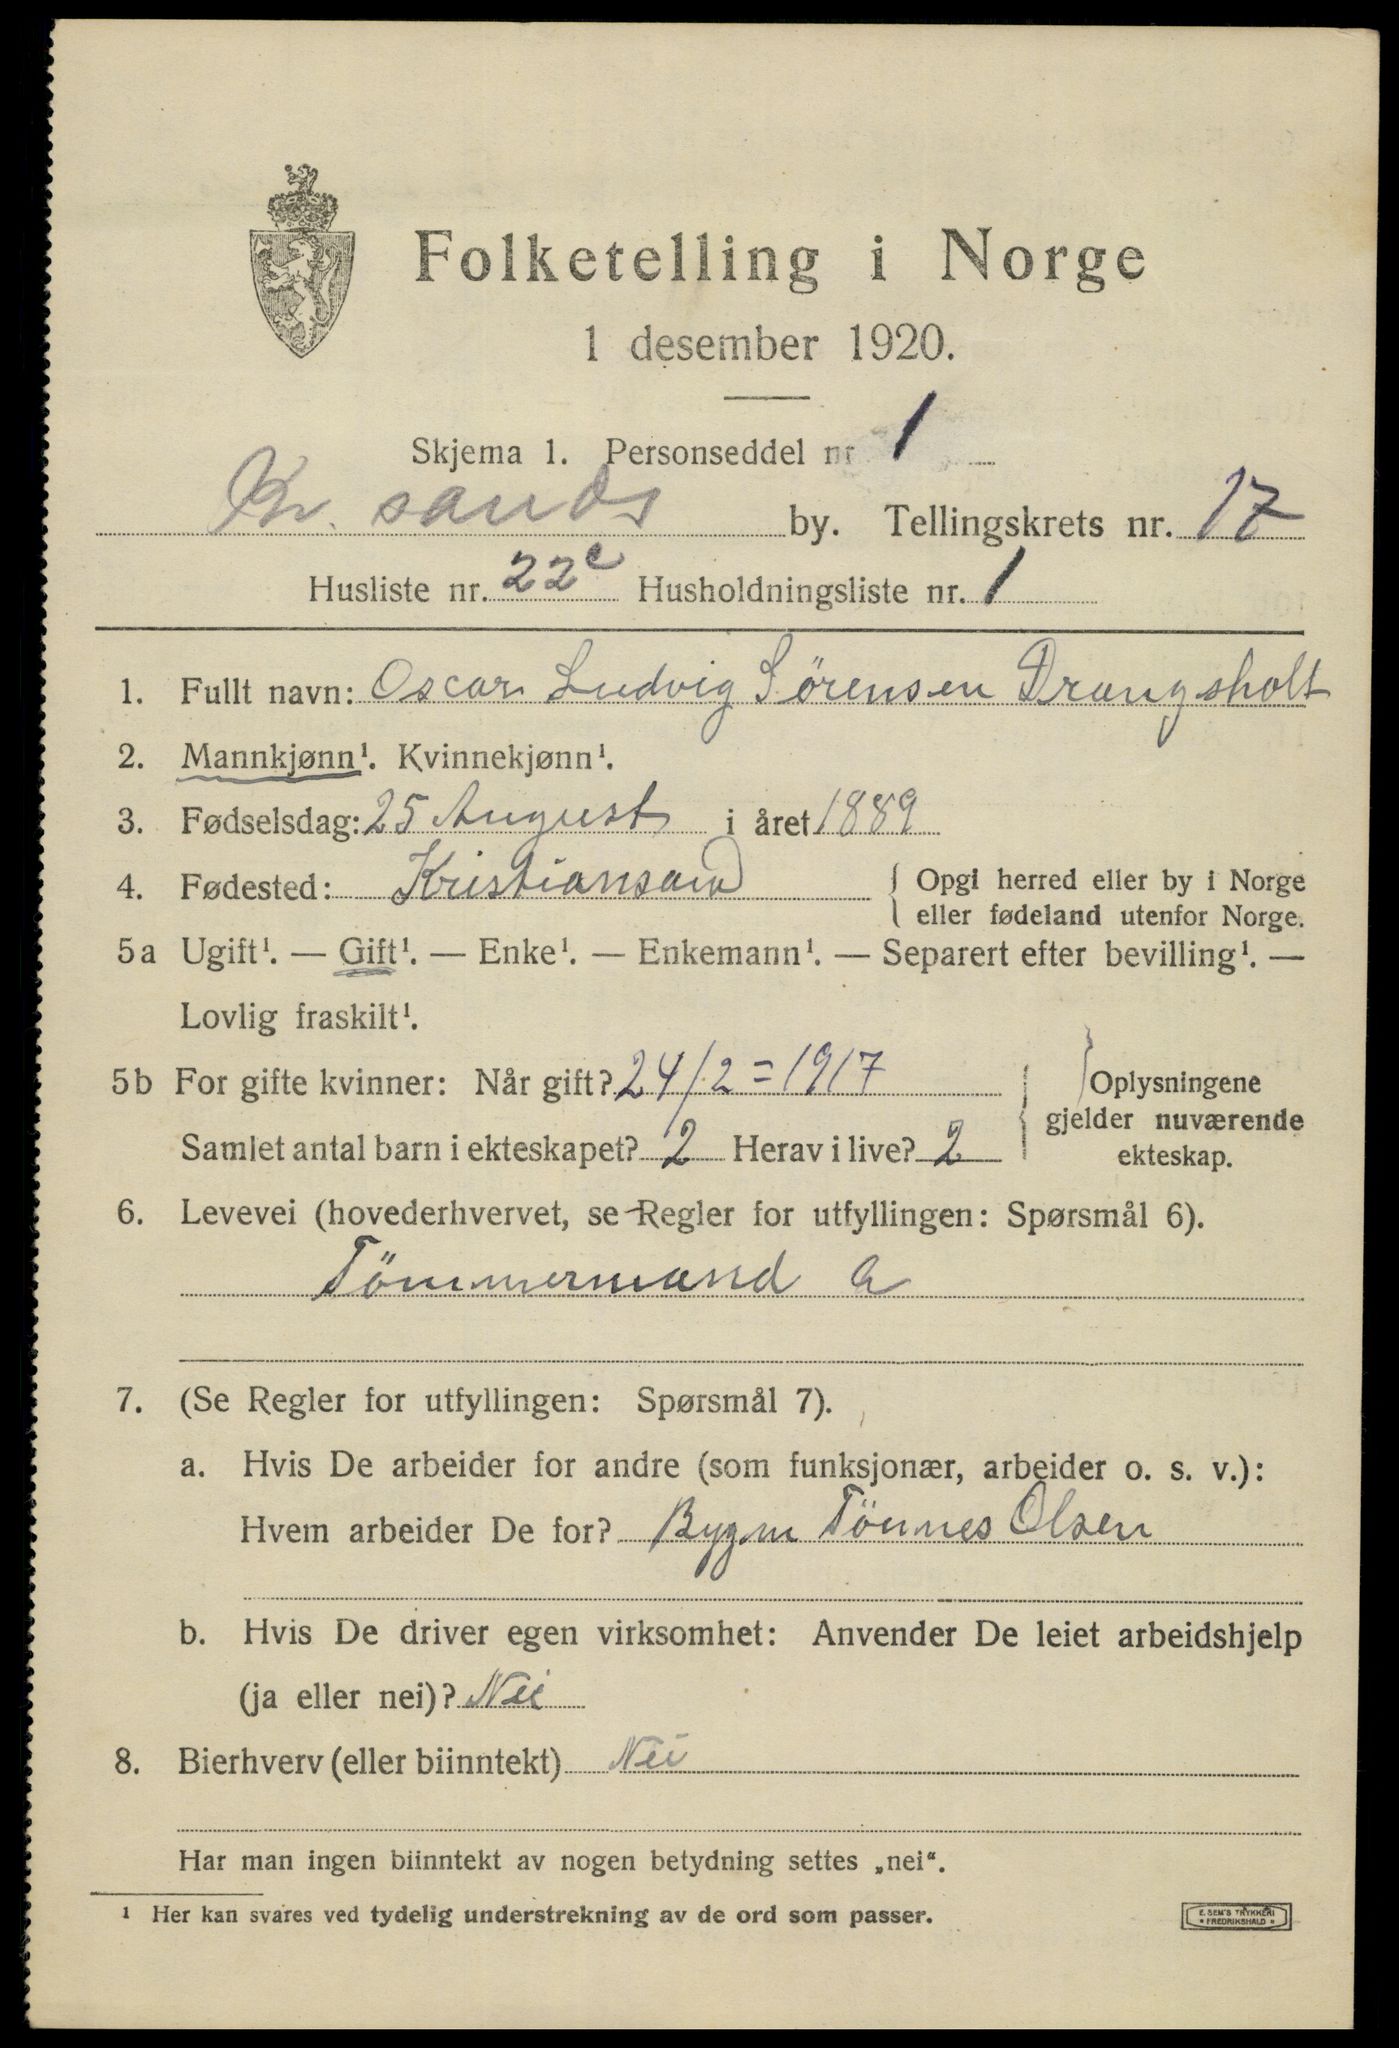 Folketelling i Norge
1 desember 1920.
Skjema 1. Personseddel nr 1
Kr. sands by. Tellingskrets nr. 17
Husliste nr. 22c Husholdningsliste nr. 1
1. Fullt navn: Oscar Ludvig Sörensen Drangsholt
2. Mannkjønn¹. Kvinnekjønn¹.
3. Fødselsdag: 25 August i året 1889
4. Fødested: Kristiansand { Opgi herred eller by i Norge
eller fødeland utenfor Norge.
5a Ugift¹. — Gift¹. — Enke¹. — Enkemann¹. — Separert efter bevilling¹. —
Lovlig fraskilt¹.
5b For gifte kvinner: Når gift? 24/2=1917
Samlet antal barn i ekteskapet? 2 Herav i live? 2
} Oplysningene
gjelder nuværende
ekteskap.
6. Levevei (hovederhvervet, se Regler for utfyllingen: Spørsmål 6).
Tömmermand a
7. (Se Regler for utfyllingen: Spørsmål 7).
a. Hvis De arbeider for andre (som funksjonær, arbeider o. s. v.):
Hvem arbeider De for? Bygm Tönnes Olsen
b. Hvis De driver egen virksomhet: Anvender De leiet arbeidshjelp
(ja eller nei)? Nei
8. Bierhverv (eller biinntekt) Nei
Har man ingen biinntekt av nogen betydning settes „nei“.
¹ Her kan svares ved tydelig understrekning av de ord som passer.
E. SEM'S TRYKKERI
* FREDRIKSHALD *